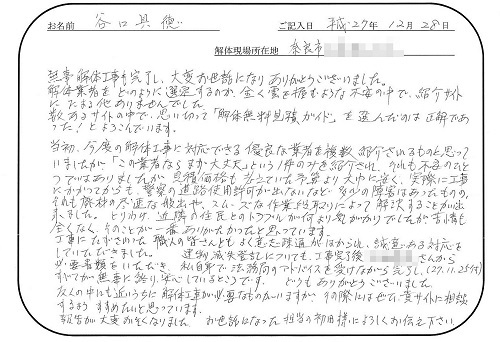 お名前 谷口真徳 ご記入日 平成27年12月28日
解体現場所在地 奈良市
無事解体工事も完了し、大変お世話になりありがとうございました。
解体業者をどのように選定するのか、全く雲を掴むような不安の中で、紹介サイト
にたよる他ありませんでした。
数あるサイトの中で、思い切って「解体無料見積ガイド」を選んだのは正解であ
った!とよろこんでいます。
当初、今度の解体工事に対応できる優良な業者を複数紹介されるものと思って
いましたが「この業者ならまず大丈夫」という1件のみを紹介され、それも不安のひと
つではありましたが、見積価格も当方でいた予算より大巾に低く、実際に工事
にかかってからも、警察の道路使用許可が出ないなど多少の障害はあったものの、
それも廃材の尽速な搬出や、スムーズな作業段取りによって解決することが出
来ました。とりわけ、近隣の住民とのトラブルが何より気がかりでしたが苦情も
全くなく、そのことが一番ありがたかったと思っています。
工事にたずさわった職人の皆さんともよく意志疎通がはかられ、誠意ある対応を
していただきました。 建物滅失登記についても、工事完了後 さんから
必要書類をいただき、私自身で法務局のアドバイスを受けながら完了し(27.11.25付)
すべてが無事に終り、安心しているところです。 どうもありがとうございました。
友人の中にも近いうちに解体工事が必要なものがいますが、その際には是非貴サイトに相談
するようすすめたいと思っています。
報告が大変おそくなりました。 お世話になった担当の初田様によろしくお伝え下さい